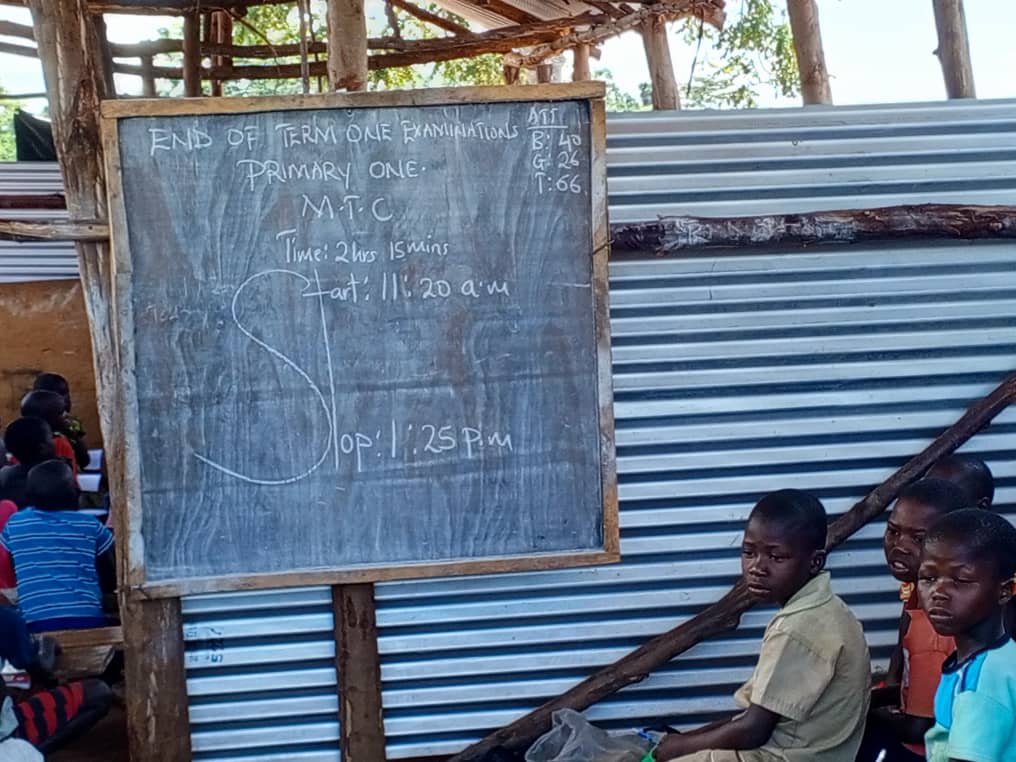 END OF TERM ONE EXAMINATIONS
PRIMARY ONE.
M.T.C
Time: 2hrs 15mins
Start: 11:20 a.m
Stop: 1:25 p.m
ATT
B: 40
G: 26
T: 66.